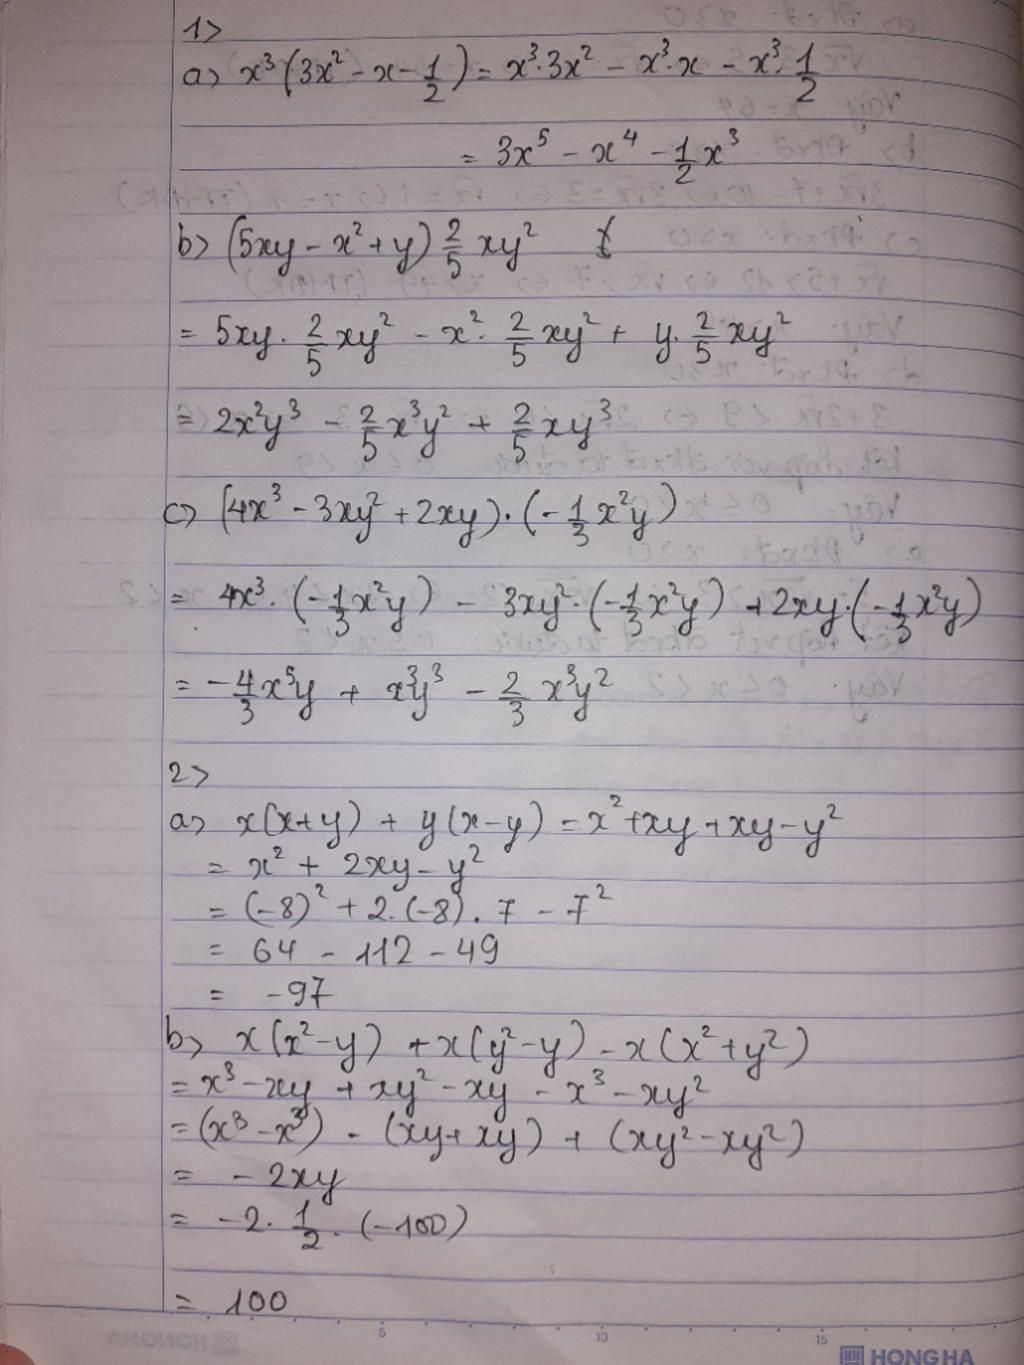 1>
a> x³(3x² - x - 1/2) = x³·3x² - x³·x - x³·1/2
= 3x⁵ - x⁴ - 1/2 x³
b> (5xy - x² + y) 2/5 xy²
= 5xy · 2/5 xy² - x² · 2/5 xy² + y · 2/5 xy²
= 2x²y³ - 2/5 x³y² + 2/5 xy³
c> (4x³ - 3xy² + 2xy) · (-1/3 x²y)
= 4x³ · (-1/3 x²y) - 3xy² · (-1/3 x²y) + 2xy · (-1/3 x²y)
= -4/3 x⁵y + x³y³ - 2/3 x³y²
2>
a> x(x+y) + y(x-y) = x² + xy + xy - y²
= x² + 2xy - y²
= (-8)² + 2.(-8).7 - 7²
= 64 - 112 - 49
= -97
b> x(x² - y) + x(y² - y) - x(x² + y²)
= x³ - xy + xy² - xy - x³ - xy²
= (x³ - x³) - (xy + xy) + (xy² - xy²)
= -2xy
= -2 · 1/2 · (-100)
= 100
5 10 15
HONG HA